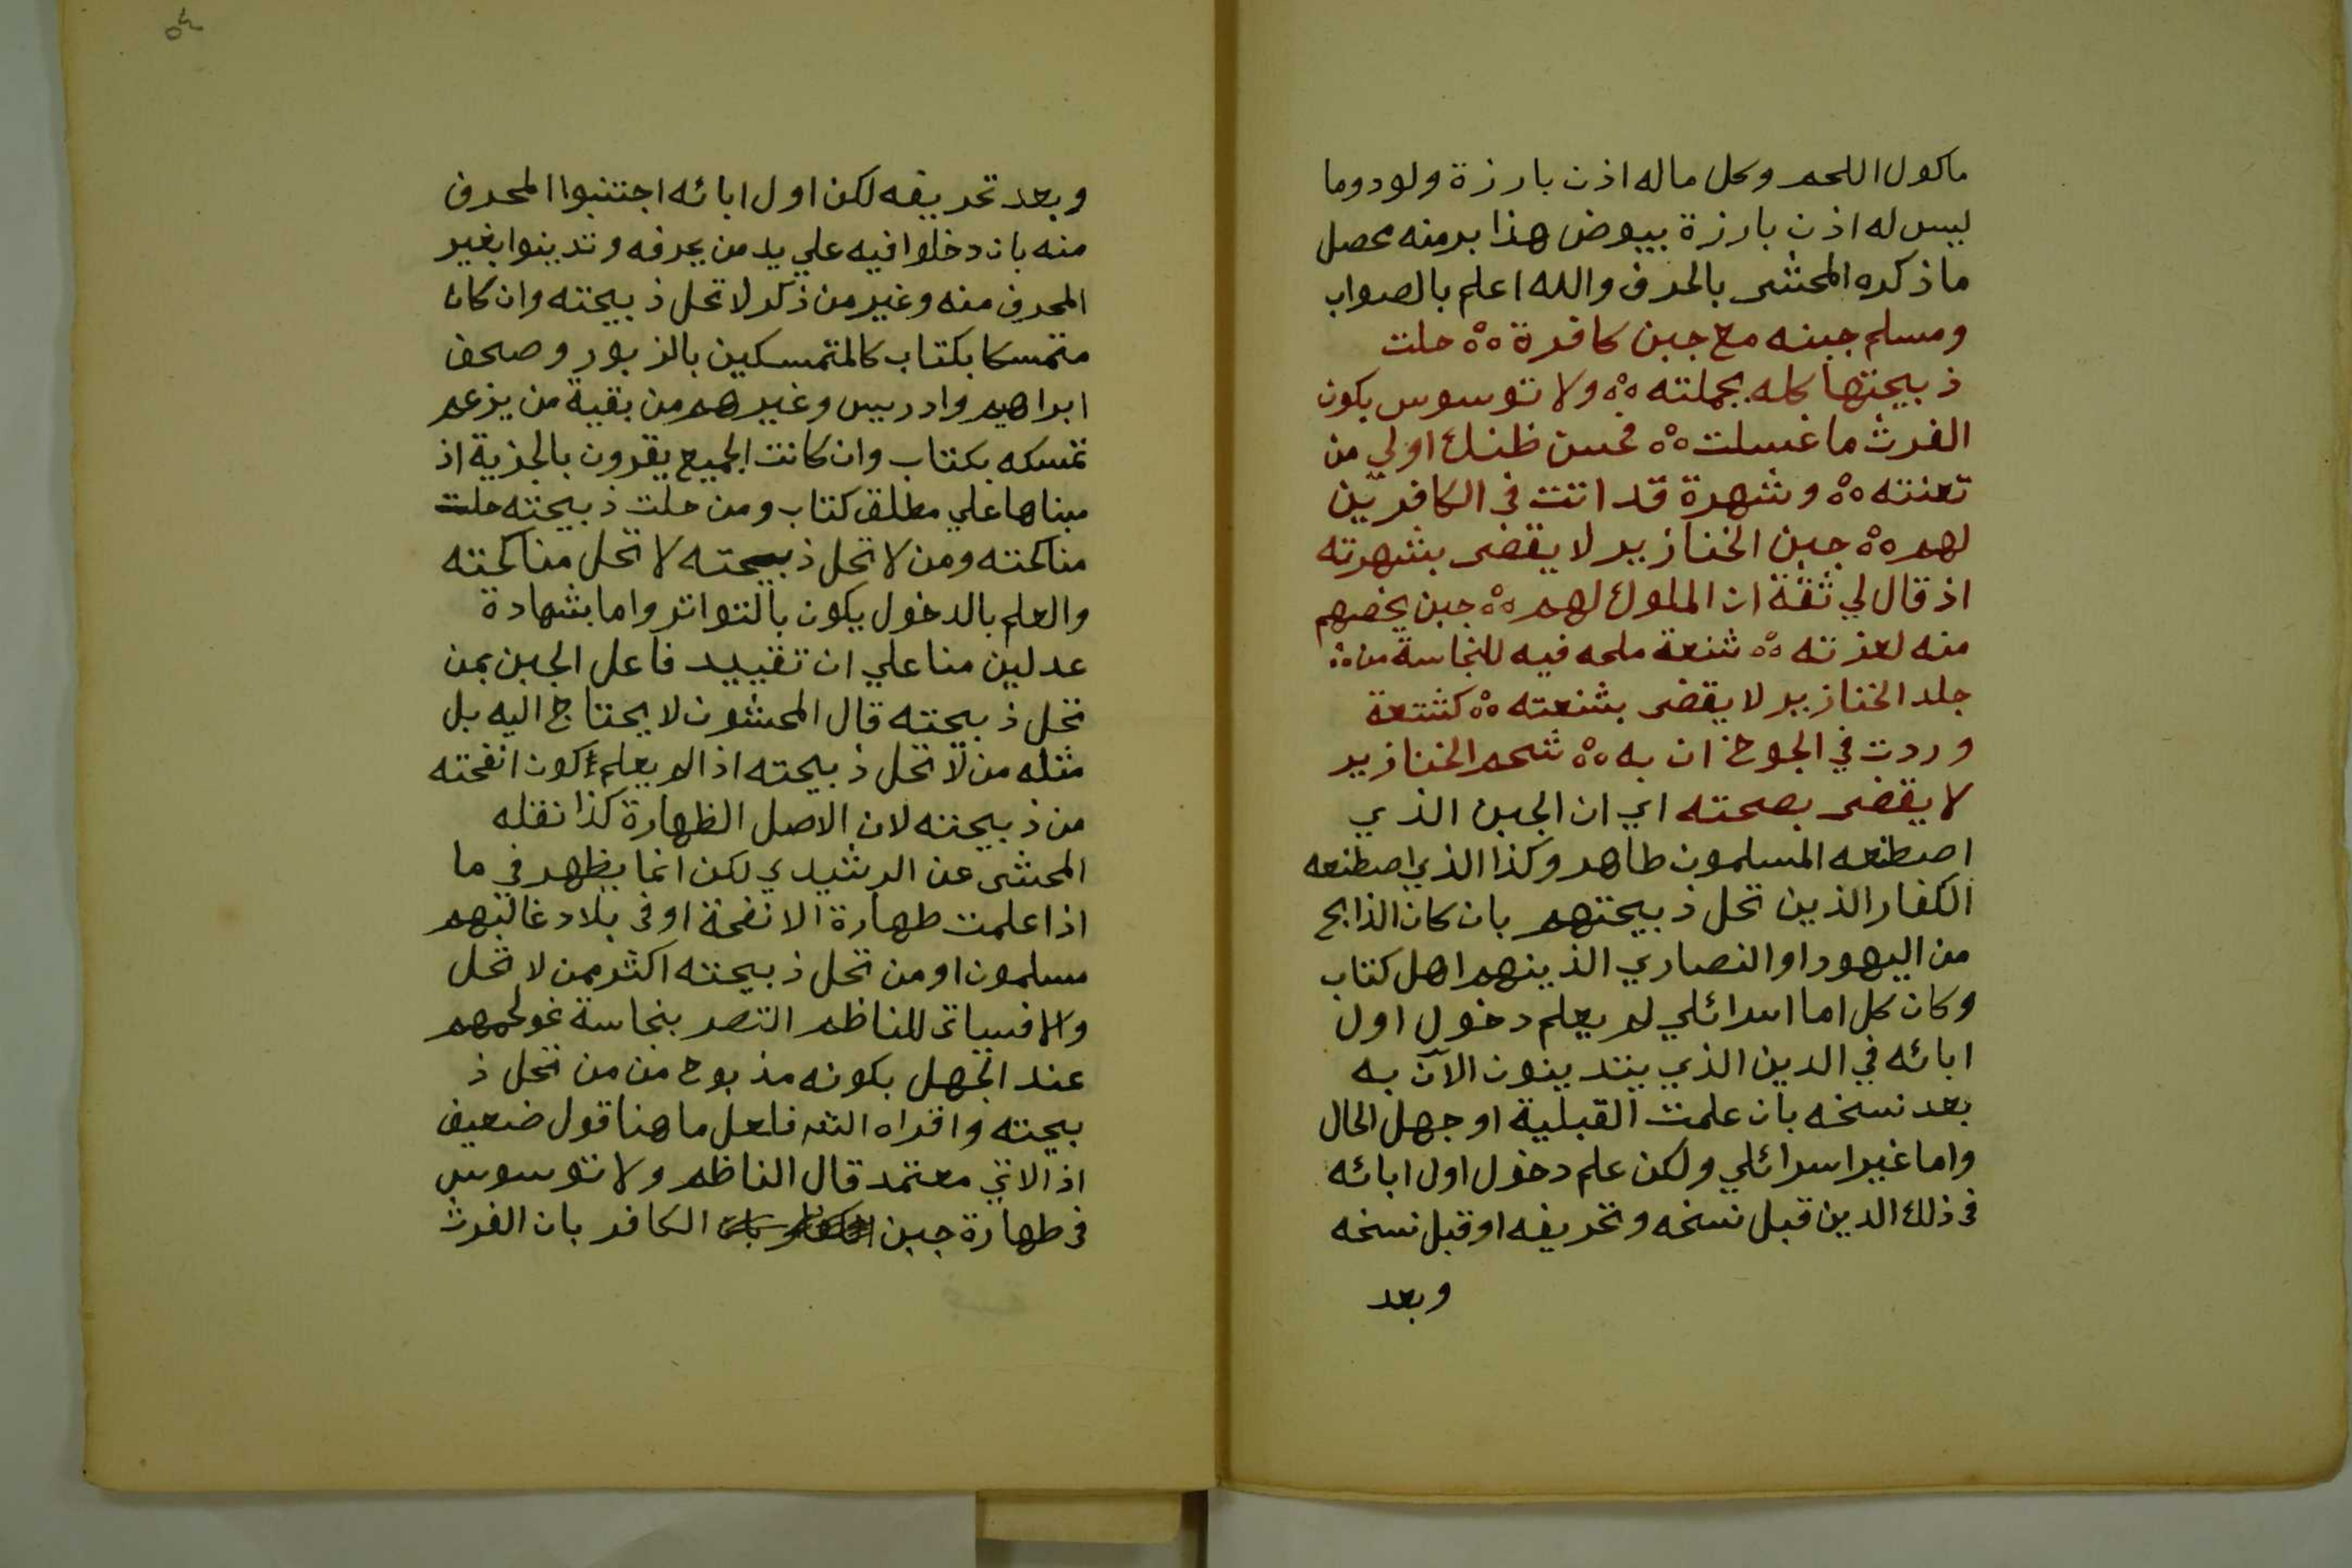 ماكول اللحم وكل ماله اذن بارزة ولود وما
ليس له اذن بارزة بيوض هذا برمته محصل
ما ذكره المحشى بالحرف والله اعلم بالصواب
ومسلم جبنه مع جبن كافرة حلت
ذبيحتها كله بجملته ولا توسوس بكون
الفرث ما غسلت فحسن ظنك اولي من
تعنته وشهرة قد اتت فى الكافرين
لهم جبن الخنازير لا يقضى بشهرته
اذ قال لي ثقة ان الملوك لهم جبن يخصهم
منه لعزته شنعة ملحه فيه للنجاسة من
جلد الخنازير لا يقضى بشنعته كشنعة
وردت في الجوخ ان به شحم الخنازير
لا يقضى بصحته اي ان الجبن الذي
اصطنعه المسلمون طاهر وكذا الذي اصطنعه
الكفار الذين تحل ذبيحتهم بان كان الذابح
من اليهود او النصاري الذينهم اهل كتاب
وكان كل اما اسرائلي لم يعلم دخول اول
ابائه في الدين الذي يتدينون الآن به
بعد نسخه بان علمت القبلية او جهل الحال
واما غير اسرائلي ولكن علم دخول اول ابائه
فى ذلك الدين قبل نسخه وتحريفه او قبل نسخه
وبعد
وبعد تحريفه لكن اول ابائه اجتنبوا المحرف
منه بان دخلوا فيه علي يد من يعرفه وتدينوا بغير
المحرف منه وغير من ذكر لا تحل ذبيحته وان كان
متمسكا بكتاب كالمتمسكين بالزبور وصحف
ابراهيم وادريس وغيرهم من بقية من يزعم
تمسكه بكتاب وان كانت الجميع يقرون بالجزية اذ
مبناها علي مطلق كتاب ومن حلت ذبيحته حلت
مناكحته ومن لا تحل ذبيحته لا تحل مناكحته
والعلم بالدخول يكون بالتواتر واما بشهادة
عدلين منا علي ان تقييد فاعل الجبن بمن
تحل ذبيحته قال المحشون لا يحتاج اليه بل
مثله من لا تحل ذبيحته اذا لم يعلم كون انفحته
من ذبيحته لان الاصل الطهارة كذا نقله
المحشى عن الرشيدي لكن انما يظهر في ما
اذا علمت طهارة الانفحة او فى بلاد غالبهم
مسلمون او من تحل ذبيحته اكثر ممن لا تحل
والا فسياتى للناظم التصر بنجاسة نحو لحمهم
عند الجهل بكونه مذبوح من من تحل ذ
بيحته واقراه الشه فلعل ما هنا قول ضعيف
اذ الاتي معتمد قال الناظم ولا توسوس
فى طهارة جبن الكافر بان الفرث